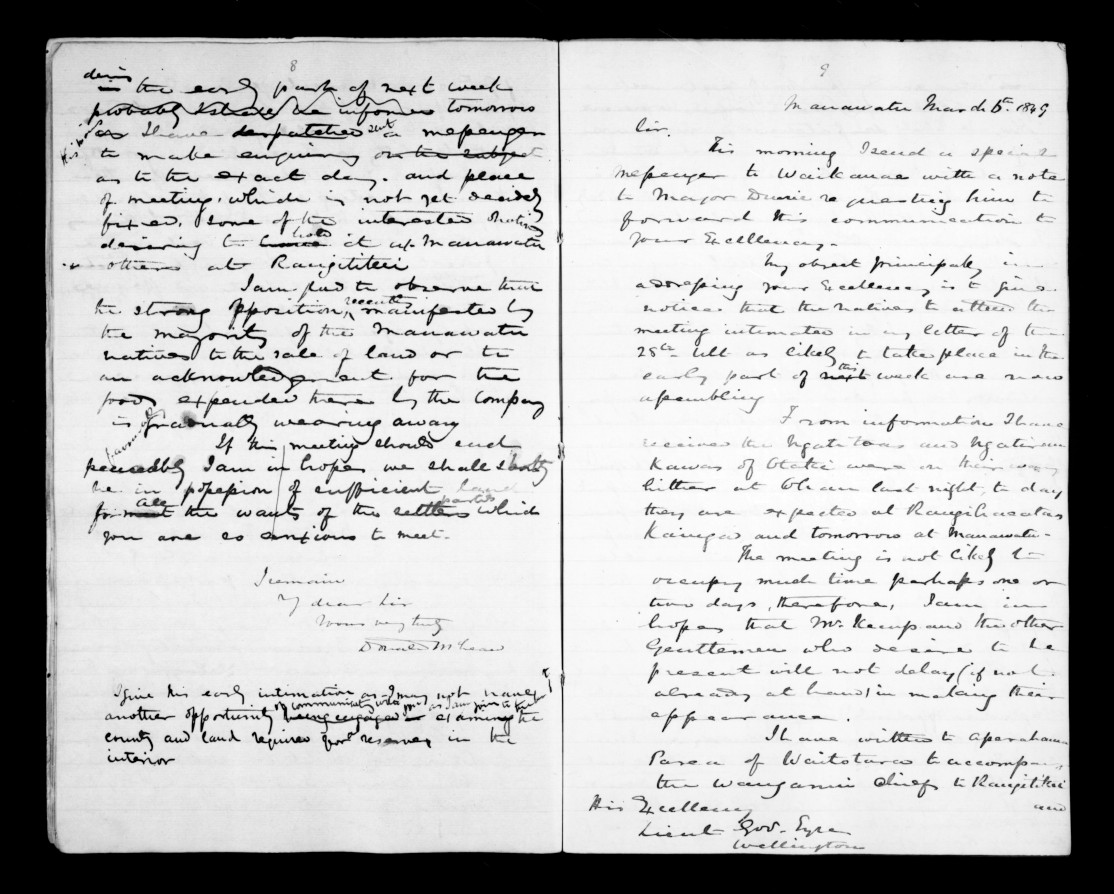 8
during
in the early part of next week
probably I shall be informed tomorrow
as I have despatched sent a messenger
this
to make enquiry on the subject
as to the exact day. and place
of meeting, which is not yet decidedly
fixed. Some of the interested Natives
desiring to have hold it up Manawatu
others at Rangitikei
I am glad to observe that
the strong opposition, recently manifested by
the majority of the Manawatu
natives to the sale of land or to
an acknowledgement for the
food expended there by the Company
is gradually wearing away
If this meeting should end
favourably
peaceably I am in hopes we shall shortly
be in possession of sufficient land
for meet also the wants of the settlers parties which
you are so anxious to meet.
I remain
My dear Sir
Yours very truly
Donald McLean
I give this early intimation as I may not have
another opportunity of communicating with you as I am going to
being engaged in examining the
country and land required for reserves in the
interior
9
Manawatu March 5th 1849
Sir,
This morning I send a special
messenger to Waikanae with a note
to Major Durie requesting him to
forward this communication to
your Excellency.
My object principally in
addressing your Excellency is to give
notice that the natives to attend the
meeting intimated in my letter of the
28th ult as likely to take place in the
early part of next this week are now
assembling
From information I have
received the Ngatitoa and Ngatirau
Kawas of Otaki were on their way
hither at Ohau last night, to day
they are expected at Rangihaeatas
Kaingas and tomorrow at Manawatu.
The meeting is not likely to
occupy much time perhaps one or
two days, therefore, I am in
hopes that Mr. Kemp and the other
Gentlemen who desire to be
present will not delay (if not
already at hand) in making their
appearance.
I have written to Aperahama
Parea of Waitotara to accompany
the Wanganui Chiefs to Rangitikei
and
His Excellency
Lieut Gov. Eyre
Wellington